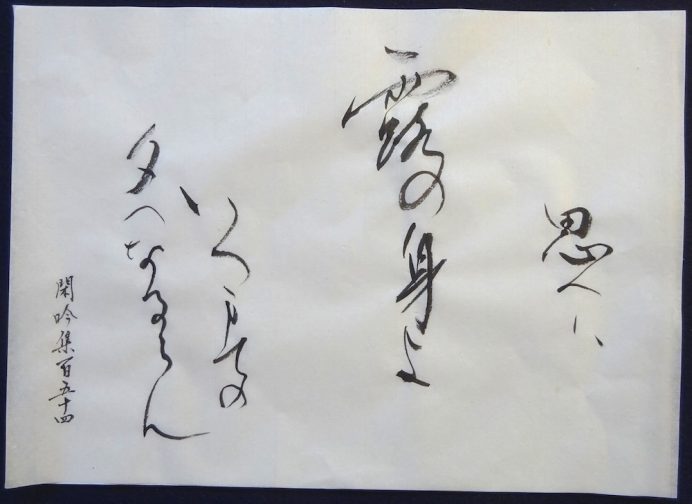 思へは
露の身よ
いつまての
夕へなるらん
閑吟集百五十四